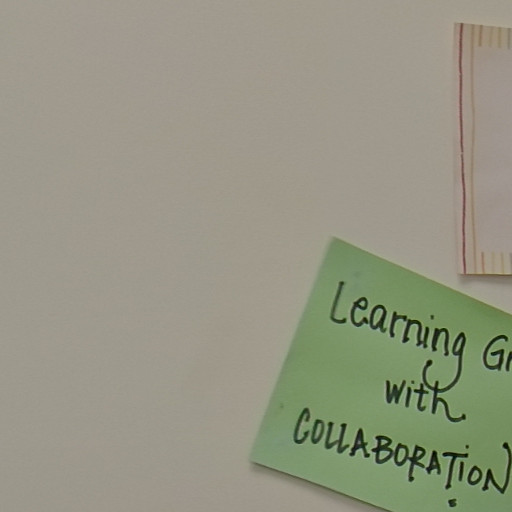 Learning
with
COLLABORATION